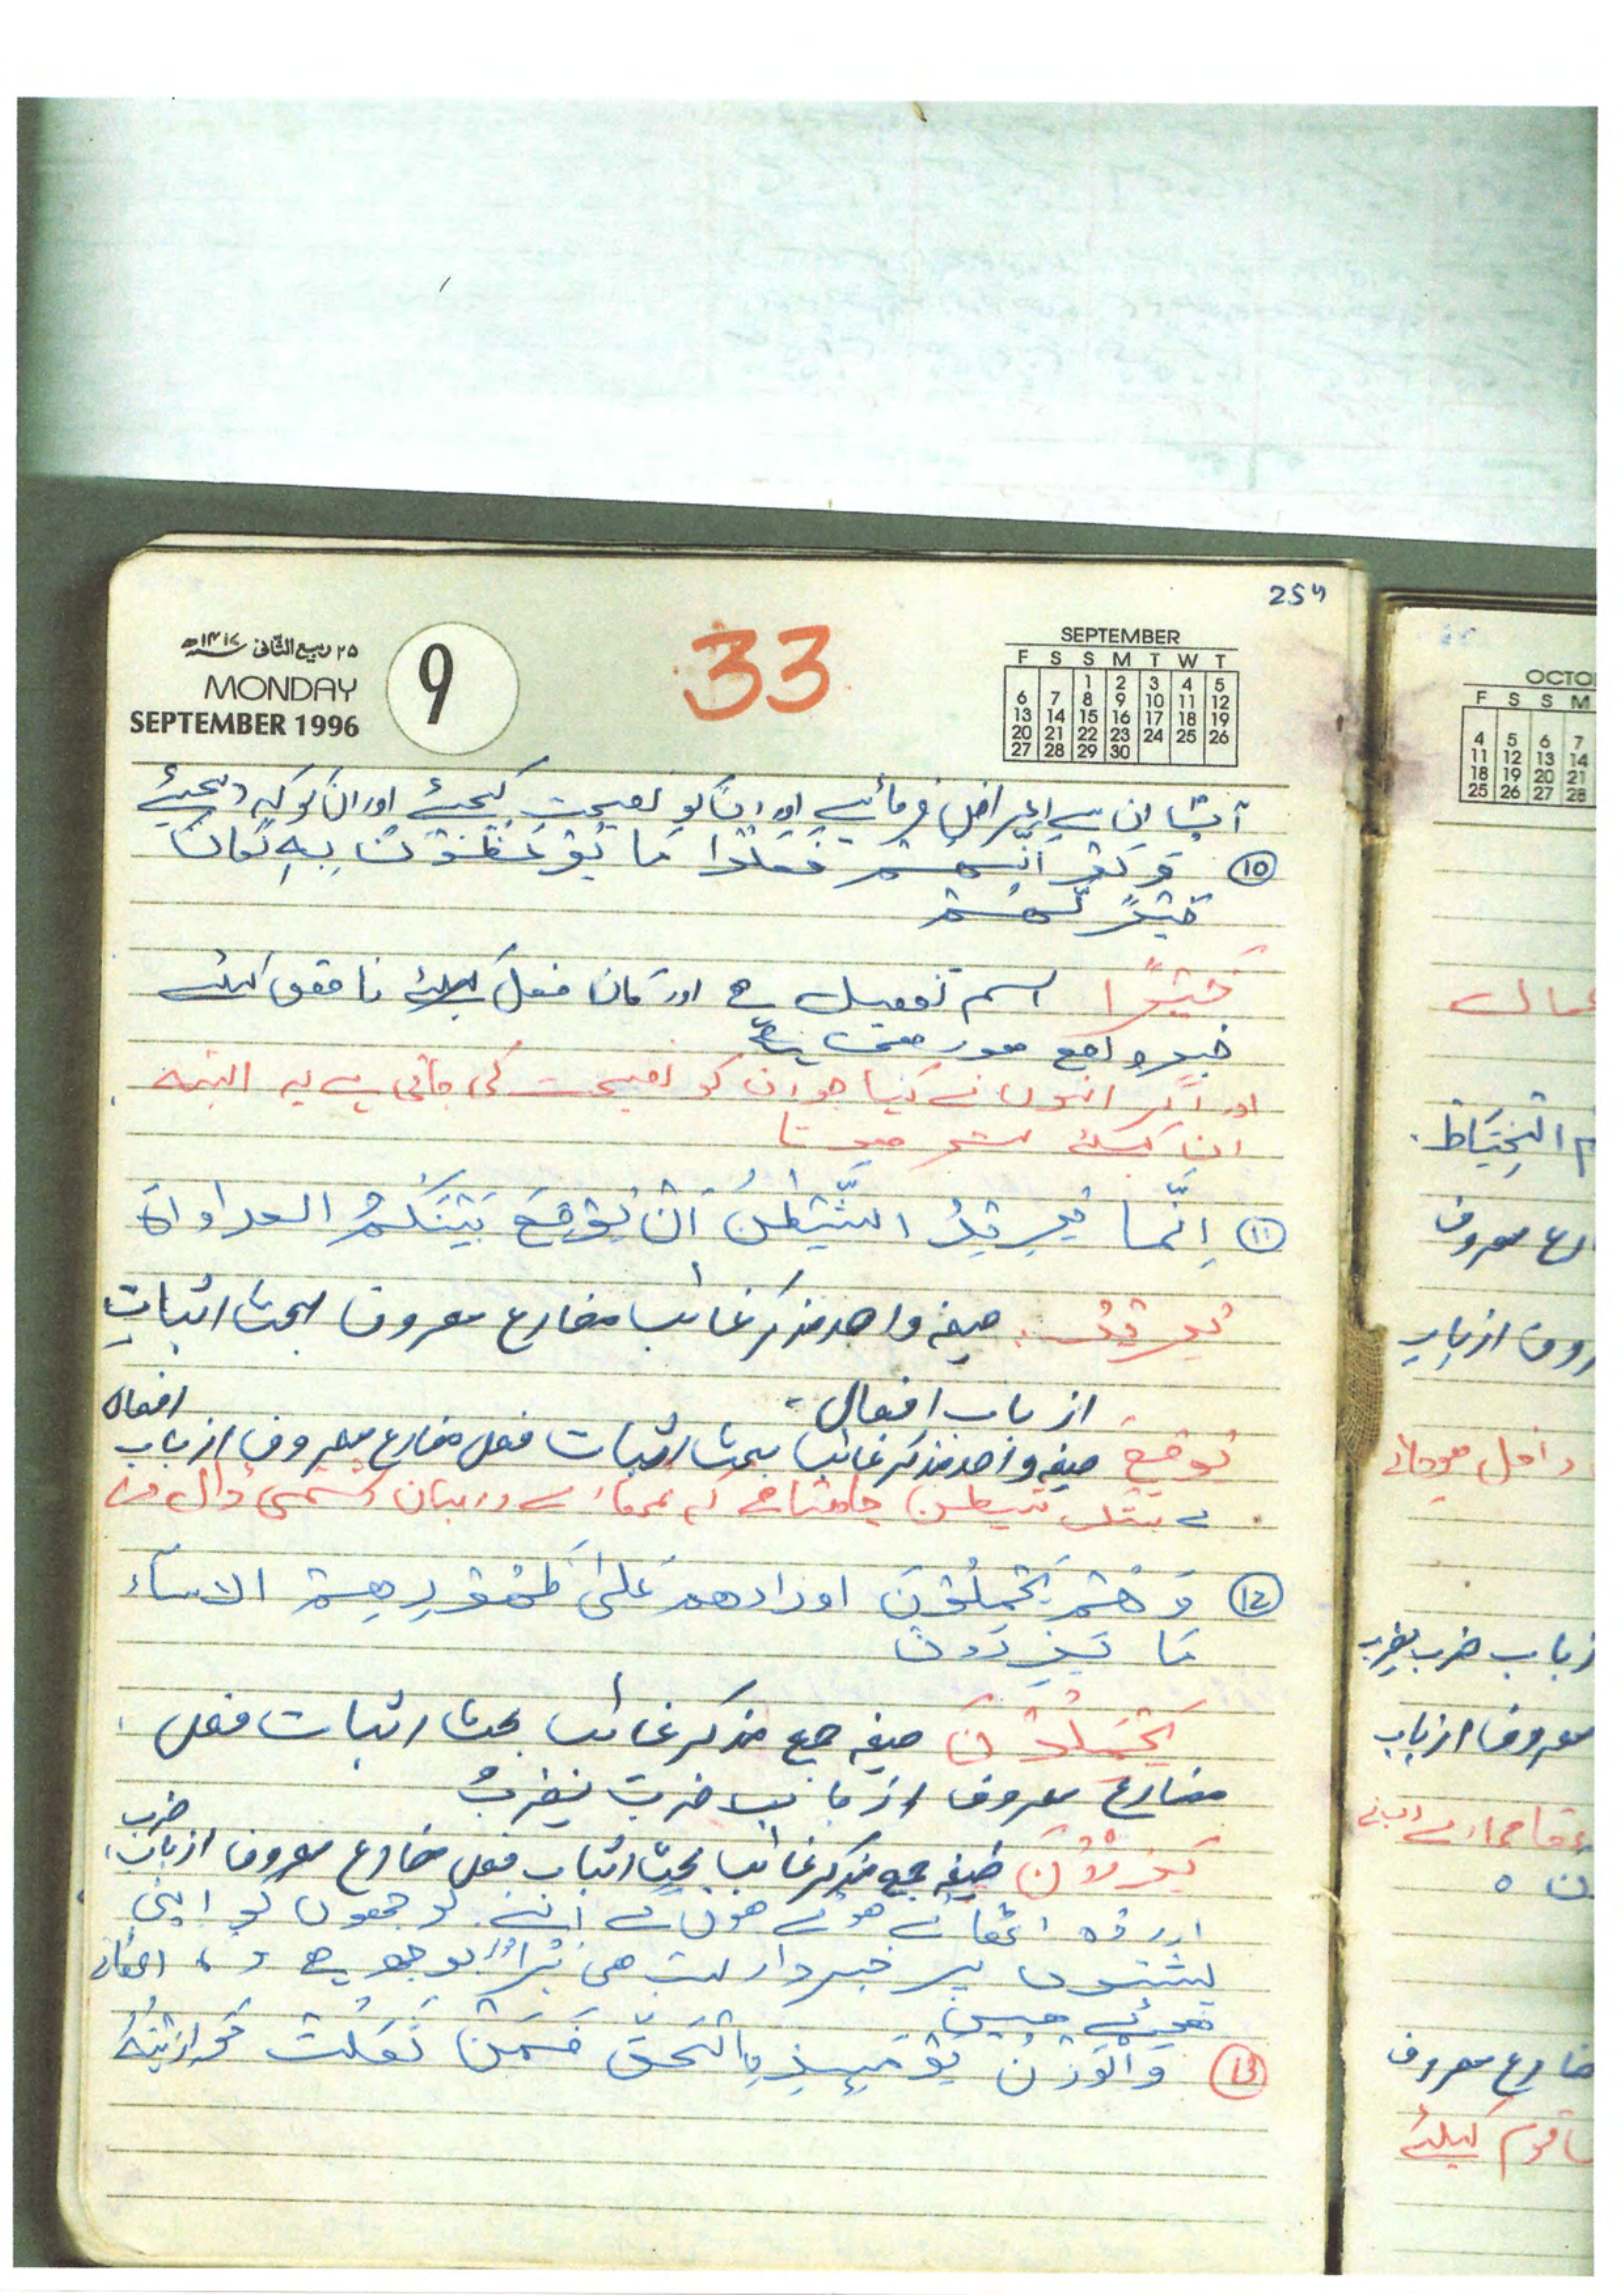 254
۲۵ ربیع الثانی ۱۴۱۷ھ
MONDAY
SEPTEMBER 1996
9
33
SEPTEMBER
F S S M T W T
1 2 3 4 5
6 7 8 9 10 11 12
13 14 15 16 17 18 19
20 21 22 23 24 25 26
27 28 29 30
آپ ان سے اعراض فرمائیے اور ان کو نصیحت کیجئے اور ان کو کہہ دیجئے
⑩ وَلَوْ اَنَّهُمْ فَعَلُوْا مَا يُوْعَظُوْنَ بِهٖ لَكَانَ
خَيْرًا لَّهُمْ
خَيْرًا اسم تفضیل ہے اور کان فعل کیلئے ناقص کیلئے
خبر واقع ہو رہی ہے
اور اگر انہوں نے کیا ہو ان کو نصیحت کی جاتی ہے یہ البتہ
ان کیلئے ہوتا
⑪ اِنَّمَا يُرِيْدُ الشَّيْطٰنُ اَنْ يُّوْقِعَ بَيْنَكُمُ العداواة
يُرِيْدُ صیغہ واحد مذکر غائب مضارع معروف بحث اثبات
از باب افعال
يُوقِعَ صیغہ واحد مذکر غائب بحث اثبات فعل مضارع معروف از باب افعال
بے شک شیطن چاہتا ہے کہ تمھارے درمیان دشمنی ڈال دے
⑫ وَهُمْ يَحْمِلُوْنَ اوزارهم عَلٰى ظُهُوْرِهِمْ الاساء
مَا يَزِرُوْنَ
يَحْمِلُوْنَ صیغہ جمع مذکر غائب بحث اثبات فعل
مضارع معروف از باب ضرب يضربُ
يَزِرُوْنَ صیغہ جمع مذکر غائب بحث اثبات فعل مضارع معروف از باب ضرب
اور وہ اٹھائے ہوئے ہوں گے اپنے بوجھوں کو اپنی
پشتوں پر خبردار بہت ہی برا بوجھ ہے وہ اٹھائے
ہوئے ہیں
⑬ وَالْوَزْنُ يَوْمَئِذِ الْحَقّ فَمَنْ ثَقُلَتْ مَوَازِيْنُهٗ
OCTO
F S S M
4 5 6 7
11 12 13 14
18 19 20 21
25 26 27 28
الْخِيَاطِ
ارع معروف
روف از باب
داخل ہوجائے
ز باب ضرب يضرب
معروف از باب
ضارع معروف
قوم کیلئے